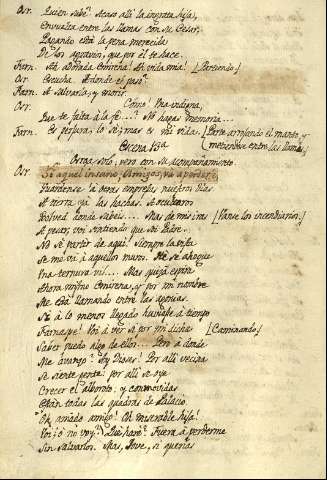 Osr. Quien sabe? Acaso allí la ingrata hija,
Envuelta entre las llamas con su Cesar,
Pagando está la pena merecida
De los agravios, que por él te hace.
Farn. Ah, Adorada Comrena! Ah vida mia! [Partiendo.]
Osr. Escucha. Adonde el paso?
Farn. A salvarla, y morir.
Osr. Cómo! Una indigna,
Que te falta á la fé...? No hagas memoria...
Farn. Es perjura, lo sé; mas es mi vida. [Parte arrojando el manto, y metiendose entre las llamas.]
Escena 13.ª
Osroa, solo; pero con su acompañamiento.
Osr. Si aquel insano, Amigos, va á perderse,
Guardense á otras empresas nuestros dias
A tierra ya las hachas. A recataros
Volved donde sabeis.... Mas de mis iras [Vanse los incendiarios.]
A pesar, voi sintiendo que soi Padre.
No sé partir de aqui. Siempre la vista
Se me vá á aquellos muros. Me se ahogue
Una ternura vil.... Mas quizá espira
Ahora mismo Comrena, y por mi nombre
Me está llamando entre las agonias.
Si á lo menos llegado huviese á tiempo
Farnaspe! Voi á ver si por mi dicha [Caminando.]
Saber puedo algo de ellos.... Pero á donde
Me avanzo? Ay Diosas! Por allí vecina
Se siente gente: por allí se oye
Crecer el alboroto: y conmovidas
Están todas las quadras de Palacio.
Oh, amado amigo! Oh miserable hija!
Voi, ó no voy? Que haré? Fuera á perderme
Sin salvarlos. Mas, Jove, si querias